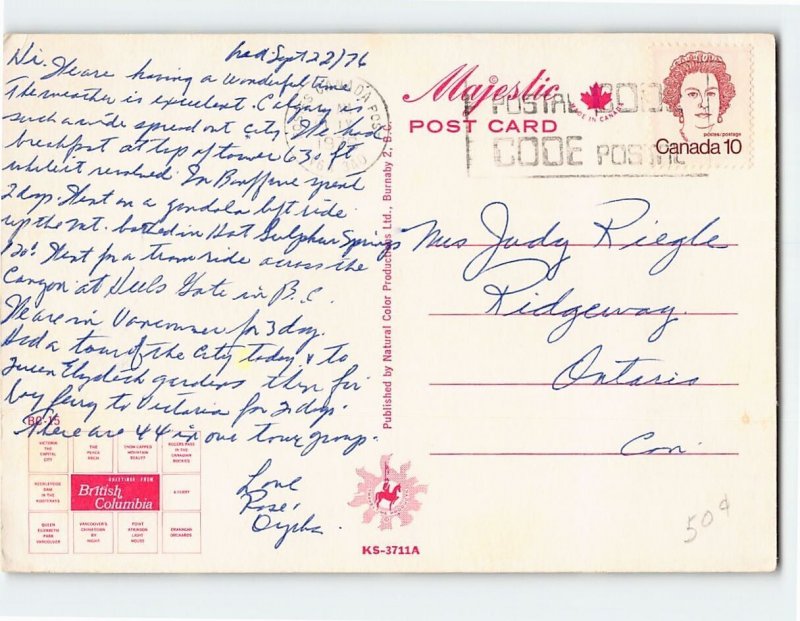 Wed. Sept 22/76
Hi. We are having a wonderful time
The weather is excellent. Calgary is
such a wide spread out city. We had
breakfast at top of tower 630 ft
while it revolved. In Banff we spent
2 days. Went on a gondola lift ride
up the Mt. bathed in Hot Sulphur Springs
120° Went for a tram ride across the
Canyon at Hells Gate in B.C.
We are in Vancouver for 3 days.
Had a tour of the City today & to
Queen Elizabeth gardens then for
by ferry to Victoria for 2 days.
There are 44 in one tour group.
Love
Rose
Majestic
POST CARD
MADE IN CANADA
POSTAL CODE
CODE POSTAL
postes/postage
Canada 10
Mrs Judy Riegle
Ridgeway
Ontario
Can
50¢
Published by Natural Color Productions Ltd., Burnaby 2, B.C.
KS-3711A
BC-15
VICTORIA THE CAPITAL CITY
THE PEACE ARCH
SNOW-CAPPED MOUNTAIN BEAUTY
ROGERS PASS IN THE CANADIAN ROCKIES
GREETINGS FROM
British
Columbia
A FERRY
QUEEN ELIZABETH PARK VANCOUVER
VANCOUVER'S CHINATOWN BY NIGHT
POINT ATKINSON LIGHT HOUSE
OKANAGAN ORCHARDS